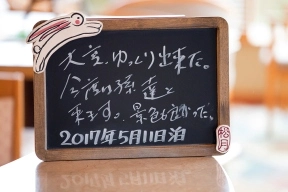 大変、ゆっくり出来た。
今度は孫達と
来ます。景色も良かった。
2017年5月11日泊
松月